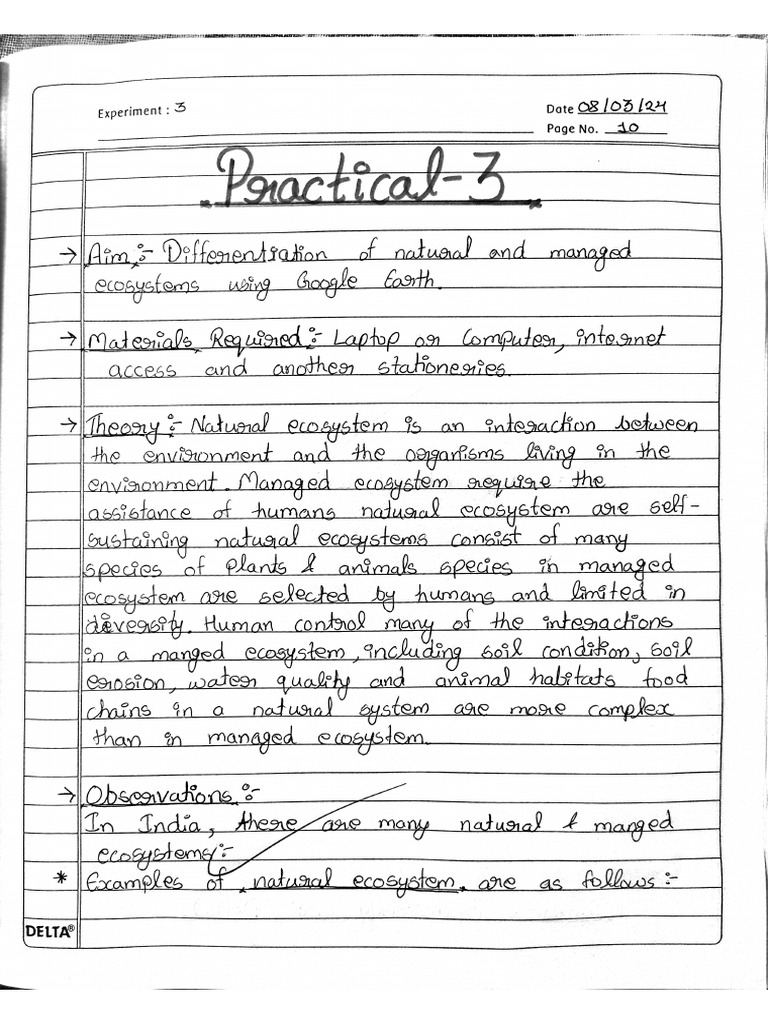 Experiment : 3
Date 08/03/24
Page No. 10
Practical-3
→ Aim :- Differentiation of natural and managed
ecosystems using Google Earth.
→ Materials Required :- Laptop or Computer, internet
access and another stationeries.
→ Theory :- Natural ecosystem is an interaction between
the environment and the organisms living in the
environment. Managed ecosystem require the
assistance of humans natural ecosystem are self-
sustaining natural ecosystems consist of many
species of plants & animals species in managed
ecosystem are selected by humans and limited in
diversity. Human control many of the interactions
in a manged ecosystem, including soil condition, soil
erosion, water quality and animal habitats food
chains in a natural system are more complex
than in managed ecosystem.
→ Observations :-
In India, there are many natural & manged
ecosystems :-
* Examples of natural ecosystem are as follows :-
DELTA®